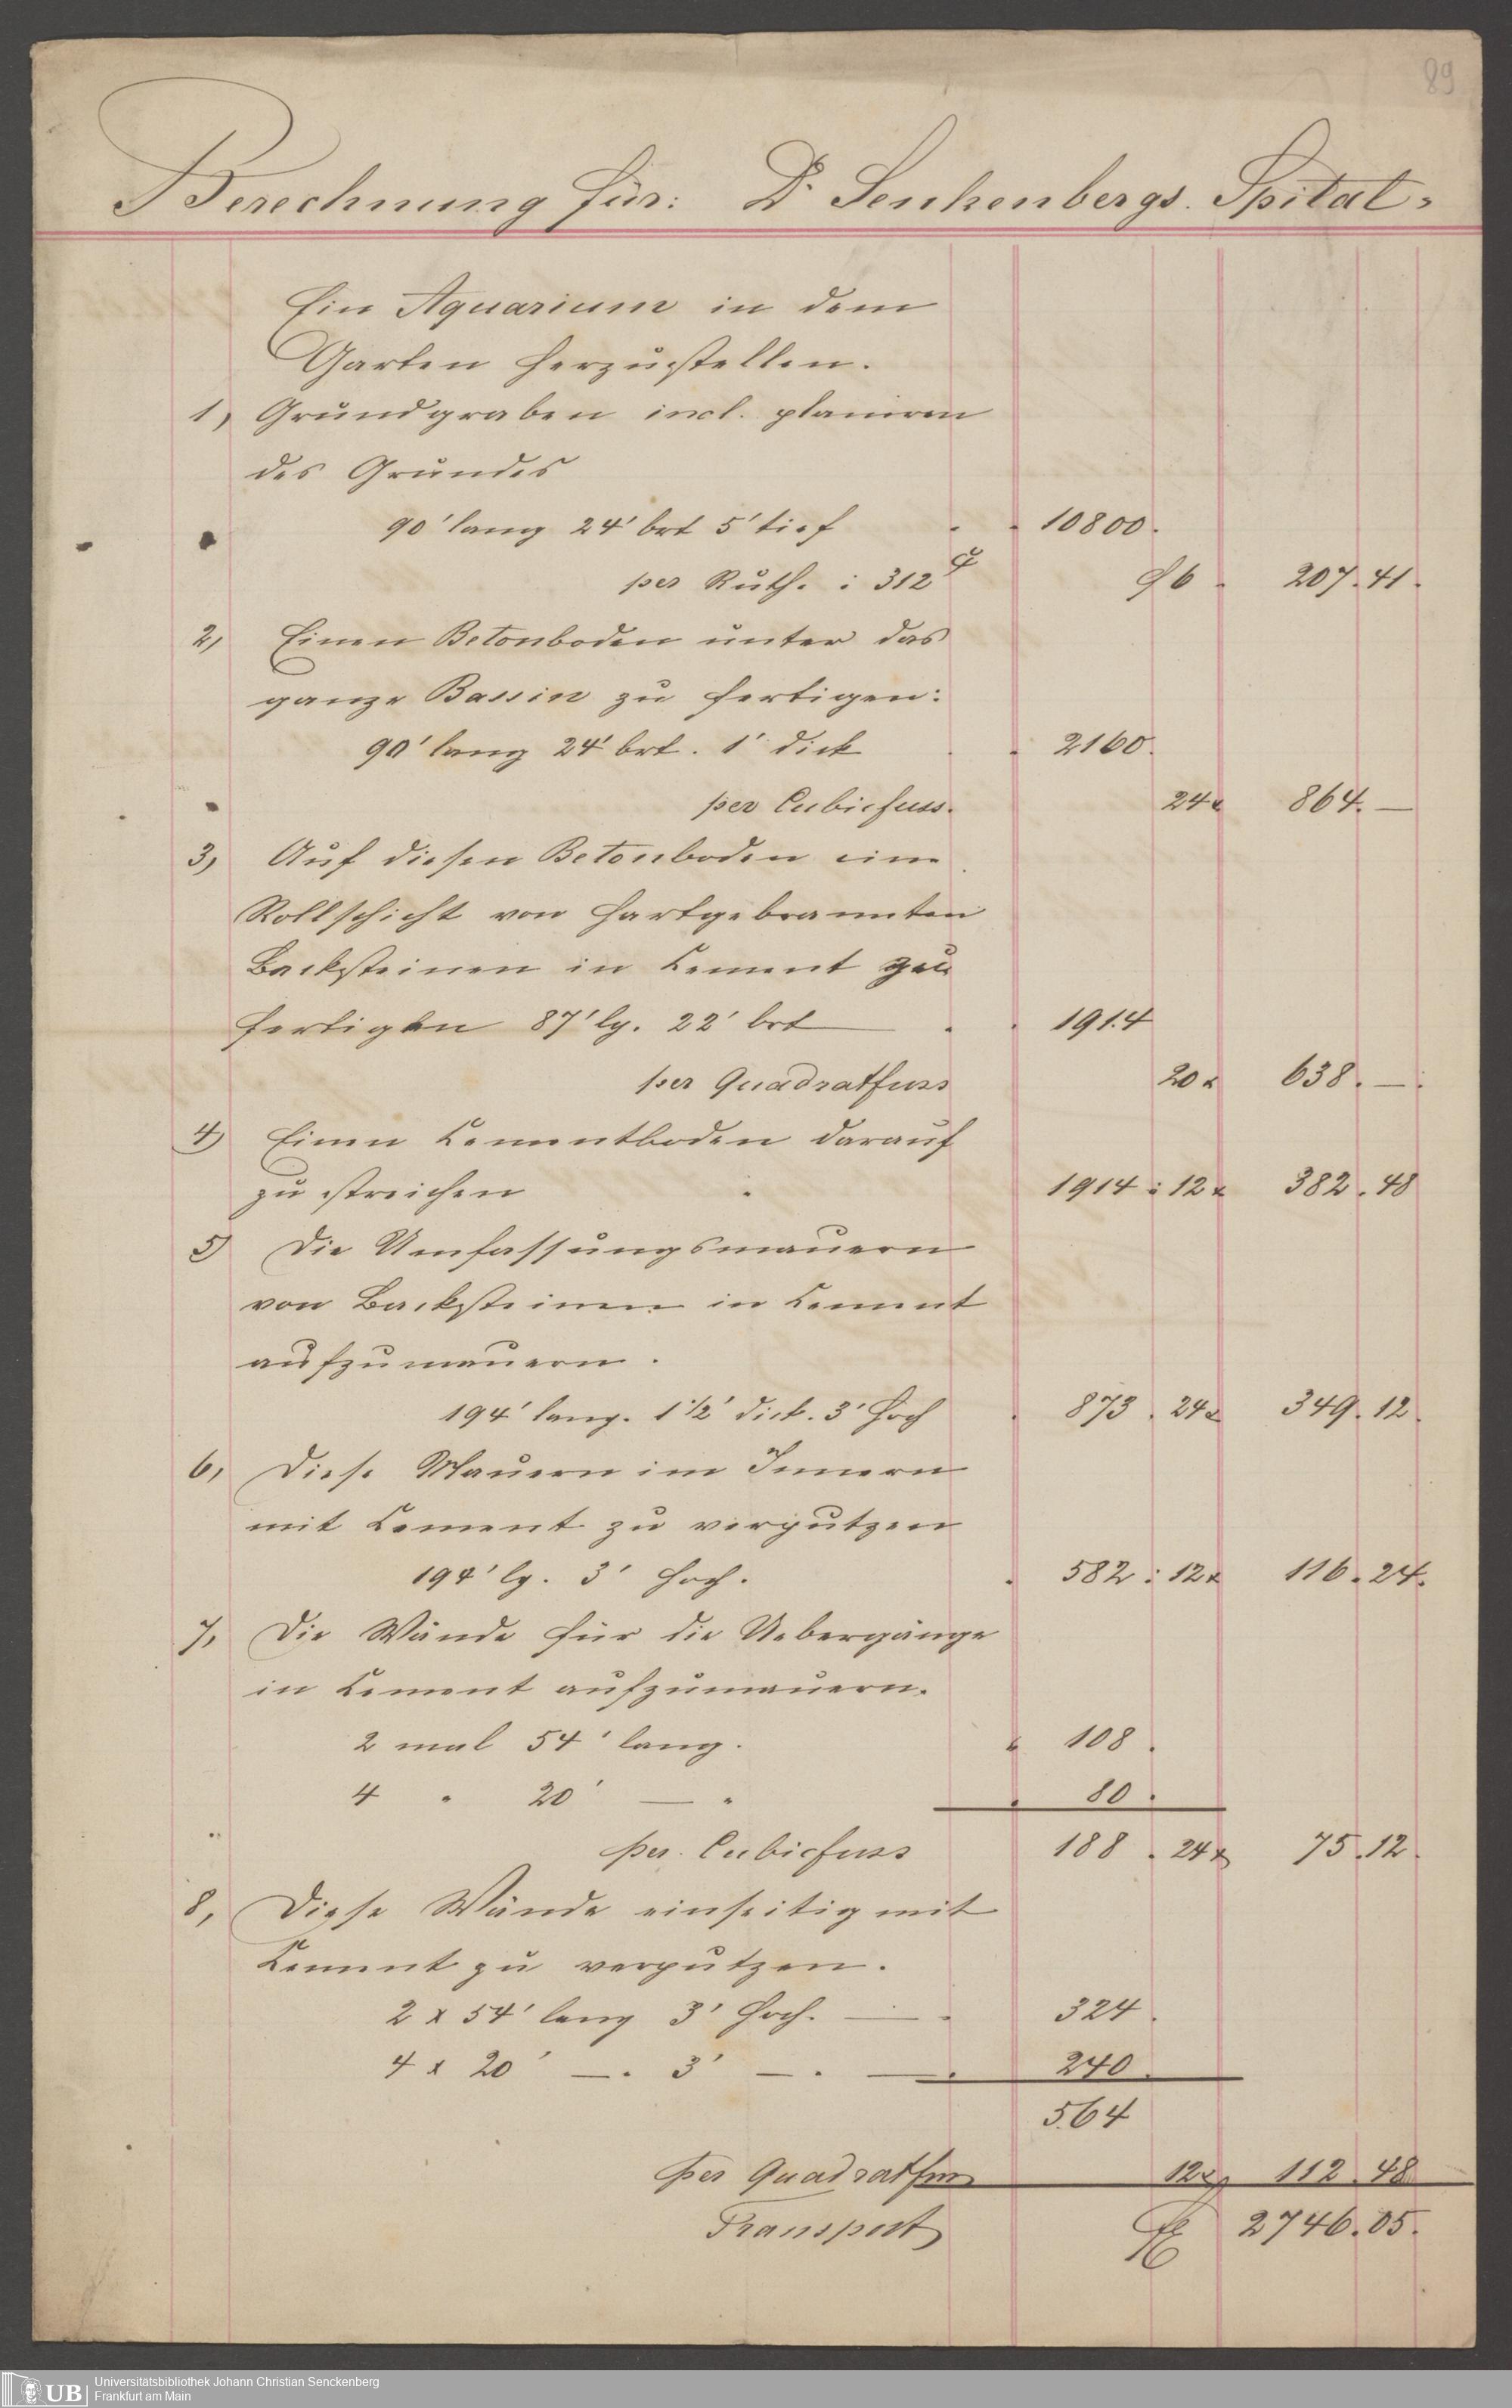 89
Berechnung für: Dr Senkenbergs. Spital.
Ein Aquarium in dem
Garten herzustellen.
1, Grundgraben incl. planiren
des Grundes
90' lang 24' brt 5' tief " " 10800.
per Ruth. : 312 f 6 . 207.41.
2, Einen Betonboden unter das
ganze Bassin zu fertigen:
90' lang 24' brt. 1' dick " " 2160.
per Cubicfuss. 24x 864.—
3, Auf diesen Betonboden eine
Rollschicht von hartgebrannten
Backsteinen in Cement zu
fertigen 87' lg. 22' brt — " " 1914
per Quadratfuss 20x 638.—.
4, Einen Cementboden darauf
zu streichen " 1914 : 12x 382.48
5, Die Umfassungsmauern
von Backsteinen in Cement
aufzumauern.
194' lang. 1 1/2' dick. 3' hoch " 873 . 24x 349.12.
6, Diese Mauern im Innern
mit Cement zu verputzen
194' lg. 3' hoch. " 582 : 12x 116.24.
7, Die Wände für die Uebergänge
in Cement aufzumauern.
2 mal 54' lang. " 108.
4 " 20' — " " 80.
per Cubicfuss 188 . 24x 75.12.
8, Diese Wände einseitig mit
Cement zu verputzen.
2 x 54' lang 3' hoch. — " 324.
4 x 20' —. 3' —. — " 240.
564
per Quadratfuss 12x 112.48
Transport fl 2746.05.
UB
Universitätsbibliothek Johann Christian Senckenberg
Frankfurt am Main